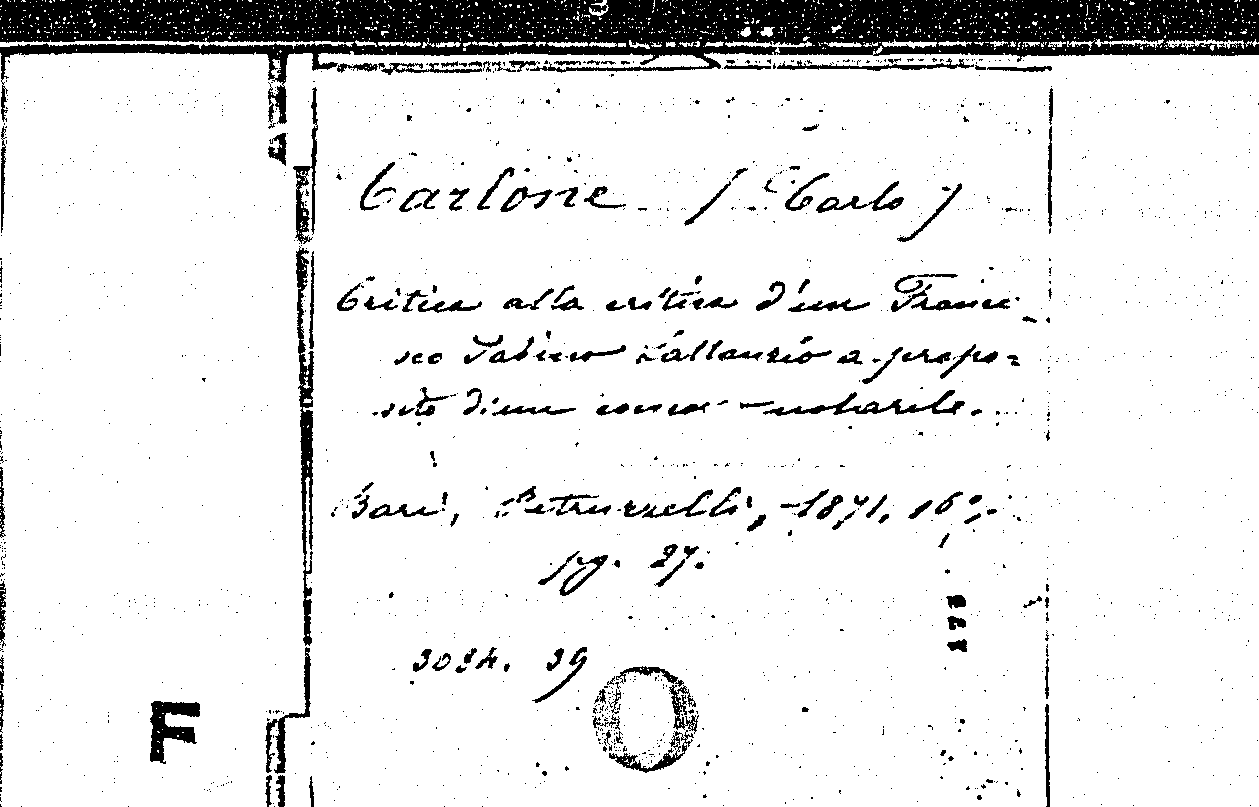 Carlone (Carlo)
Critica alla critica d'un France-
sco Sabino a propo=
sito d'un notarile.
Bari, Petruzzelli, 1871, 16°,
pg. 27.
3034. 39
F